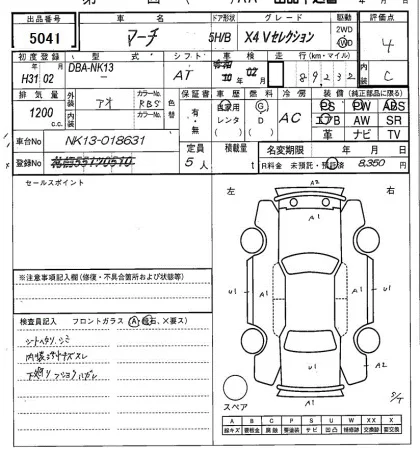 出品番号 車名 ドア形状 グレード 駆動 評価点
5041 マーチ 5H/B X4Vセレクション 2WD WD 4
初度登録 型式 シフト 車検 走行(km・マイル) 内装
H31 年 02 月 DBA-NK13 AT 10 年 02 月 89232 C
排気量 外装 アオ カラーNo. RBS 色替 保証書 車歴 燃料 冷房 装備(純正部品に限る)
1200 c.c. 内装 カラーNo. 有・無 自家用 レンタ G D AC PS PW ABS
エアB AW SR
革 ナビ TV
車台No NK13-018631
定員 積載量 名変期限 年 月 日
登録No 5人 t R料金 未預託・預託済 8,350 円
セールスポイント
左 右
A2
A1
U1 A1 A1 U1
U1 A2
A1
※注意事項記入欄(修復・不具合箇所および状態等)
検査員記入 フロントガラス(A、飛石、X要ス)
シートスリ、シミ
スペア
A B C P S U W XX X
線キズ 要板金 腐蝕 要塗装 サビ 凹凸 補修跡 交換跡 要交換